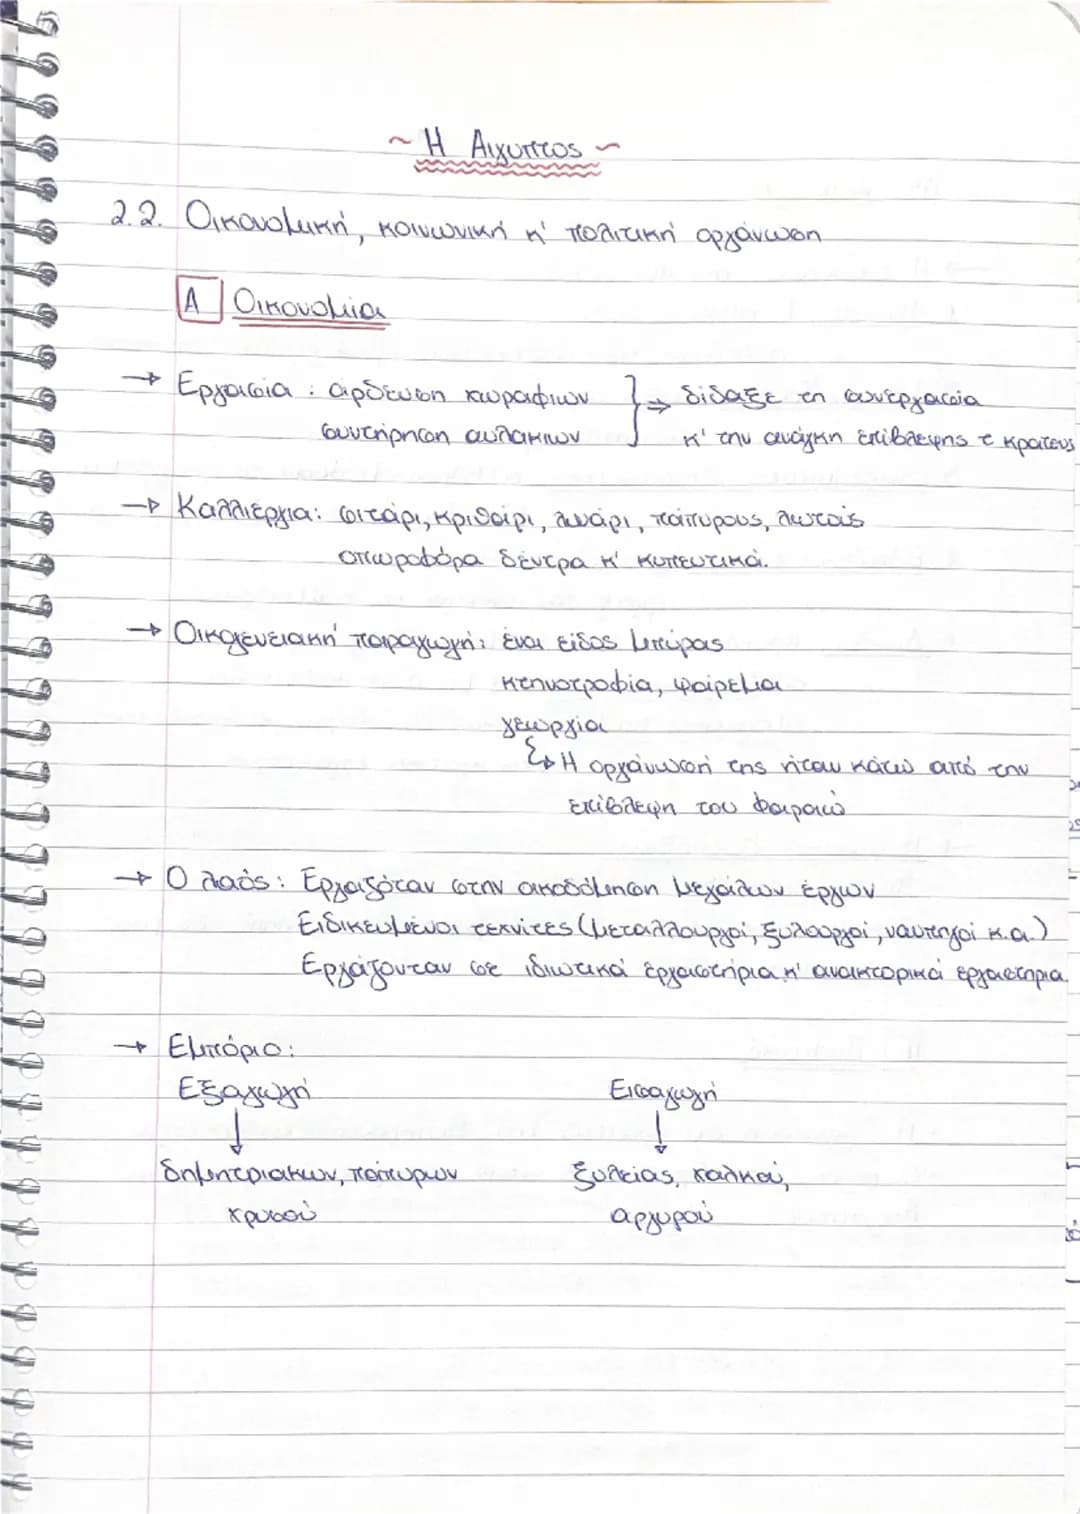 ~ Η Αιγυπτος ~
2.2. Οικονομική, κοινωνική κ' πολιτική οργάνωση
Α Οικονομία
→ Εργασία : άρδευση χωραφιων } ⇒ δίδαξε τη συνεργασία
συντήρηση αυλακιων κ' την ανάγκη επίβλεψης τ κράτους
→ Καλλιέργια: σιτάρι, κριθάρι, λινάρι, πάπυρους, λωτούς
οπωροφόρα δέντρα κ' κηπευτικά.
→ Οικογενειακή παραγωγή: ένα είδος μπύρας
κτηνοτροφία, ψάρεμα
γεωργία
↳ Η οργάνωσή της ήταν κάτω από την
επίβλεψη του φαραώ
→ Ο λαός: Εργαζόταν στην οικοδόμηση μεγάλων έργων
Ειδικευμένοι τεχνίτες (μεταλλουργοί, ξυλουργοί, ναυπηγοί κ.α.)
Εργάζονταν σε ιδιωτικά εργαστήρια κ' ανακτορικά εργαστήρια
→ Εμπόριο:
Εξαγωγή Εισαγωγή
↓ ↓
δημητριακων, παπυρων ξυλείας, χαλκού,
χρυσού αργυρού